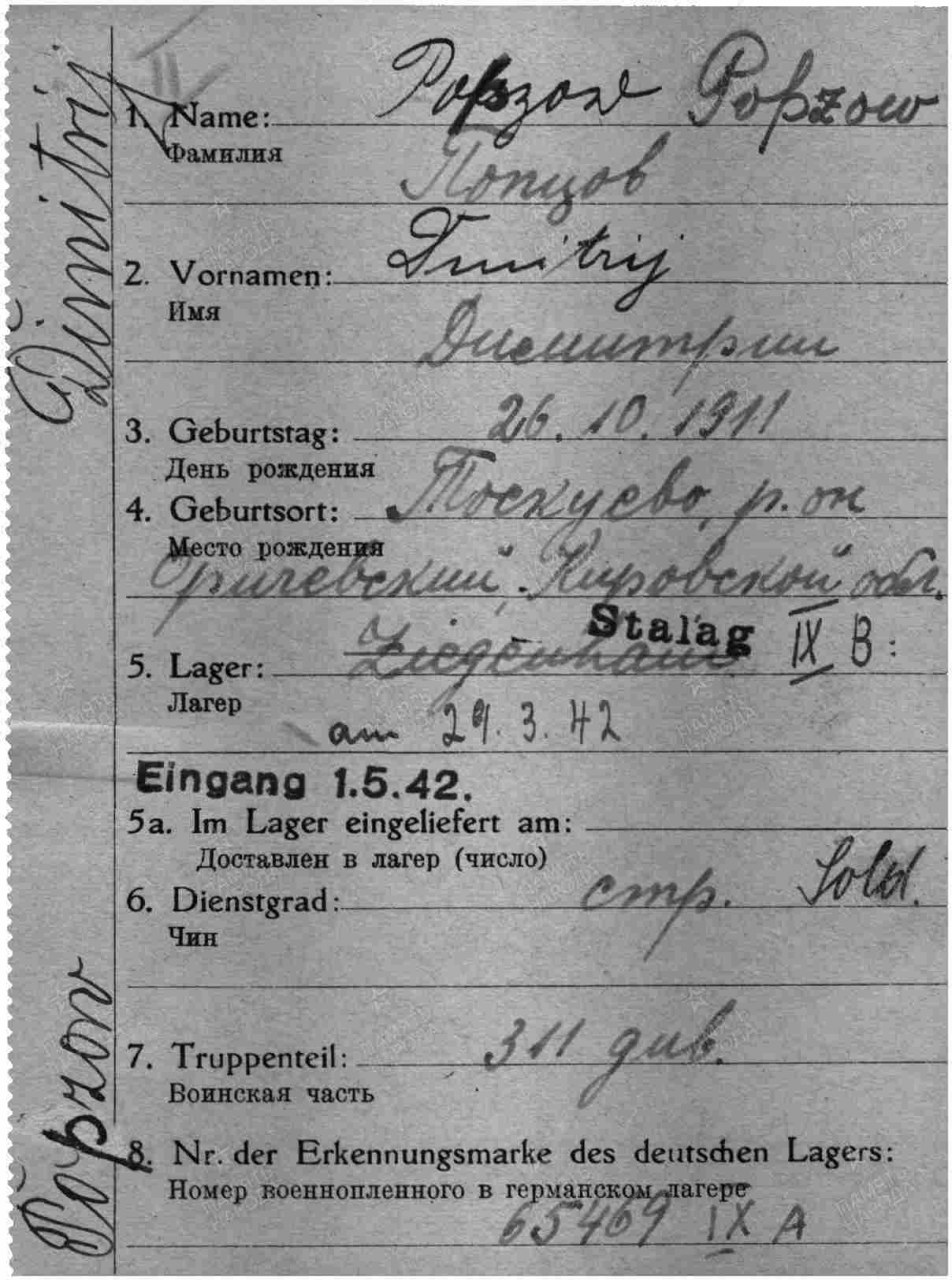 II
1. Name: Popzow Popzow
Фамилия
Попцов
2. Vornamen: Dmitrij
Имя
Дисмитрии
3. Geburtstag: 26. 10. 1911
День рождения
4. Geburtsort: Тоскуево, р. он
Место рождения
Оричевский, Кировской обл.
Stalag IX B:
5. Lager: Ziegenhain
Лагер
am 29. 3. 42
Eingang 1.5.42.
5a. Im Lager eingeliefert am:
Доставлен в лагер (число)
6. Dienstgrad: стр. Sold.
Чин
7. Truppenteil: 311 див.
Воинская часть
8. Nr. der Erkennungsmarke des deutschen Lagers:
Номер военнопленного в германском лагере
65469 IX A
Popzow
Dimitrij
ПАМЯТЬ НАРОДА